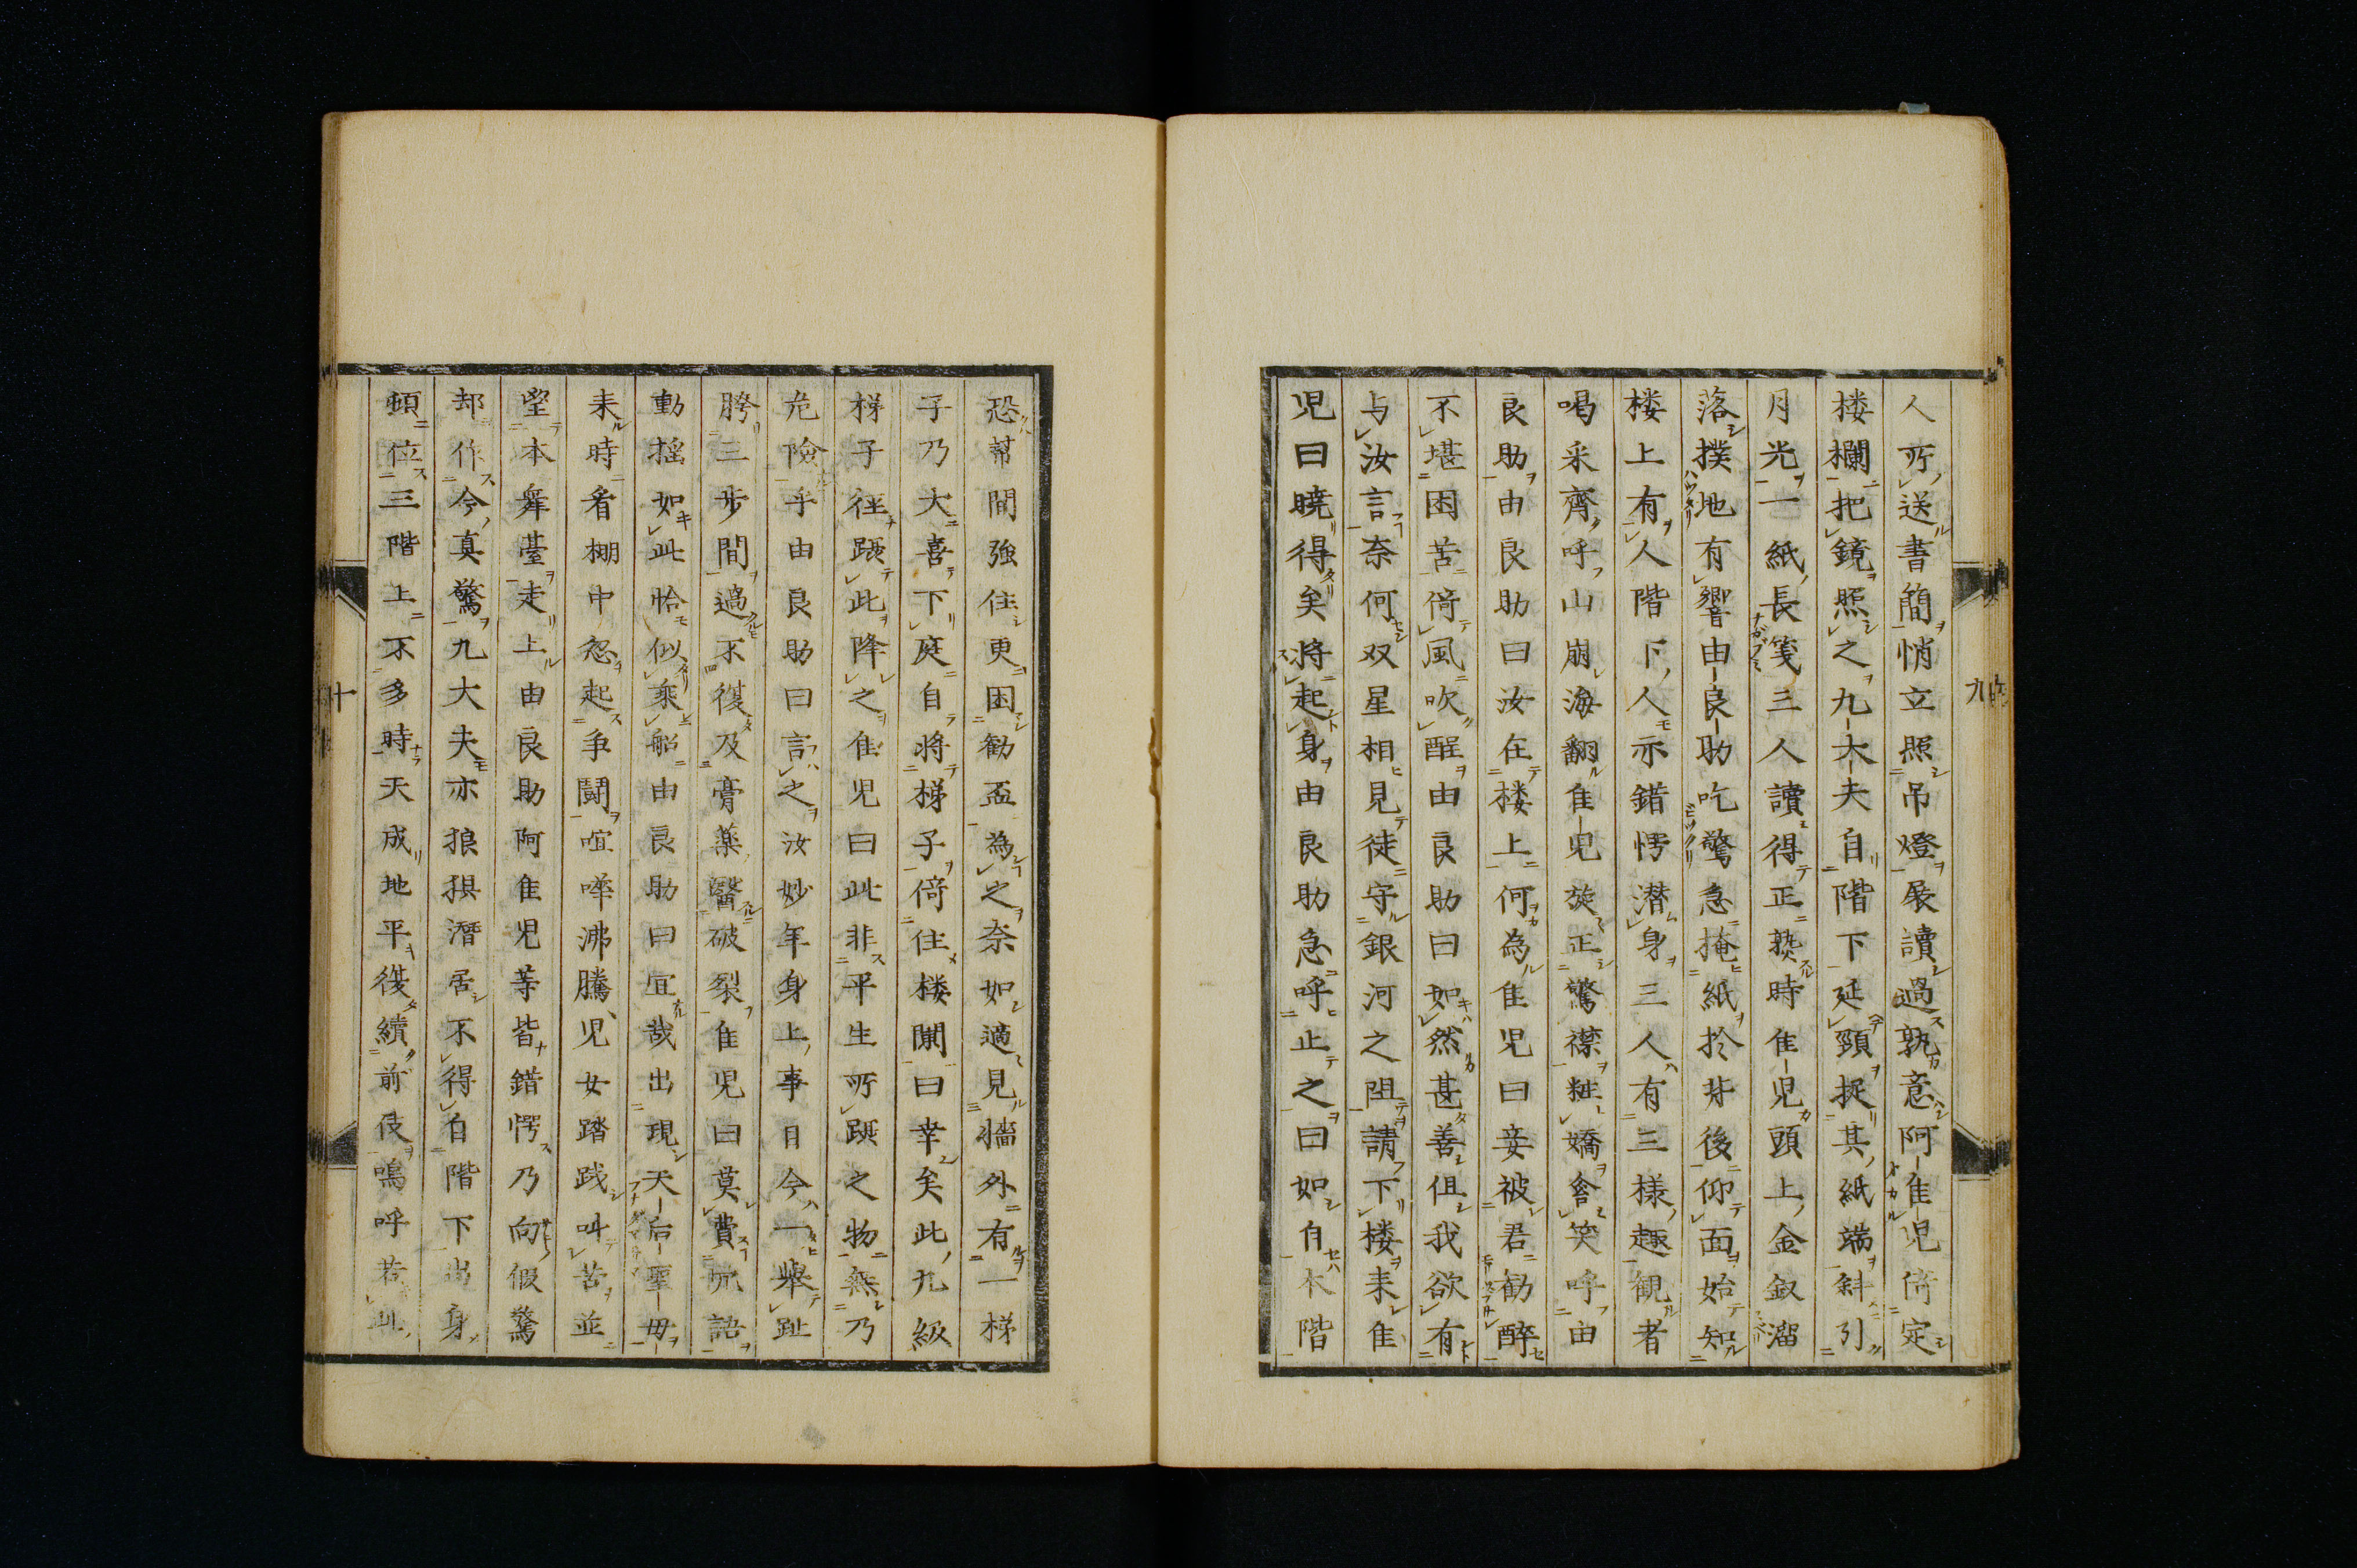 人所送書簡悄立照吊燈展讀過孰意阿隹児倚定
楼欄把鏡照之九太夫自階下延頸捉其紙端斜引
月光一紙長箋三人讀得正熟時隹児頭上金釵溜
落撲地有響由良助吃驚急掩紙於背後仰面始知
楼上有人階下人亦錯愕潜身三人有三様趣観者
喝采齊呼山崩海翻隹児旋正驚襟粧嬌含笑呼由
良助由良助曰汝在楼上何為隹児曰妾被君勧醉
不堪困苦倚風吹醒由良助曰如然甚善但我欲有
与汝言奈何双星相見徒守銀河之阻請下楼来隹
児曰暁得矣将起身由良助急呼止之曰如自本階
九
恐幇間強住更困勧盃為之奈如適見牆外有一梯
子乃大喜下庭自将梯子倚住楼閒曰幸矣此九級
梯子往踬此降之隹児曰此非平生所踬之物無乃
危險乎由良助曰言之汝妙年身上事日今一擧趾
胯三歩間過不復及膏薬醫破裂隹児曰莫費冗語
動揺如此恰似乗船由良助曰宜哉出現天后聖母
来時看棚中忽起爭鬪喧嘩沸騰児女踏践叫苦並
望本舞臺走上由良助阿隹児等皆錯愕乃向假驚
却作今真驚九大夫亦狼狽潛居不得自階下出身
頓位三階上不多時天成地平復續前伎嗚呼若此
十